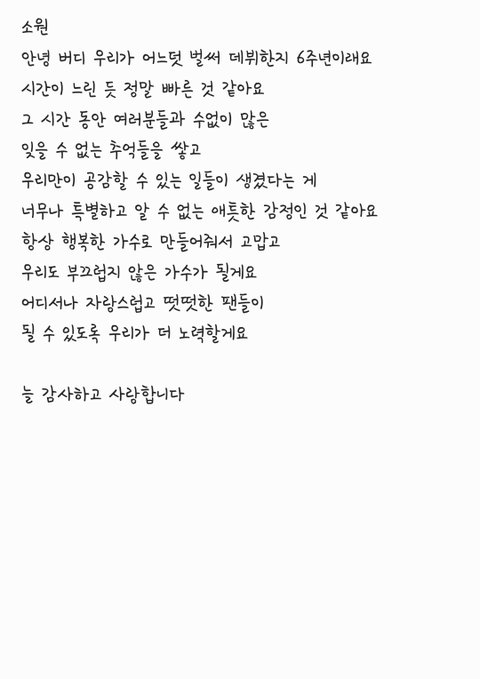 소원
안녕 버디 우리가 어느덧 벌써 데뷔한지 6주년이래요
시간이 느린 듯 정말 빠른 것 같아요
그 시간 동안 여러분들과 수없이 많은
잊을 수 없는 추억들을 쌓고
우리만이 공감할 수 있는 일들이 생겼다는 게
너무나 특별하고 알 수 없는 애틋한 감정인 것 같아요
항상 행복한 가수로 만들어줘서 고맙고
우리도 부끄럽지 않은 가수가 될게요
어디서나 자랑스럽고 떳떳한 팬들이
될 수 있도록 우리가 더 노력할게요
늘 감사하고 사랑합니다